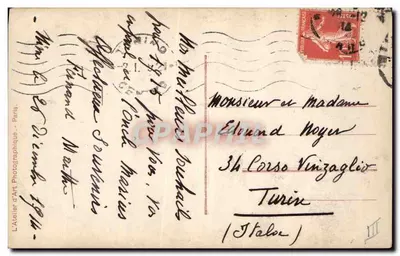 Nos Meilleurs Souhaits
pour 1915 pour Vous, Vos
et l'Oncle Marius
Affectueux Souvenirs
Fernand
Nice le 26 décembre 1914
L'Atelier d'Art Photographique - Paris.
Monsieur et Madame
Edmond Noyer
34 Corso Vinzaglio
Turin
(Italie)
III
CPArama